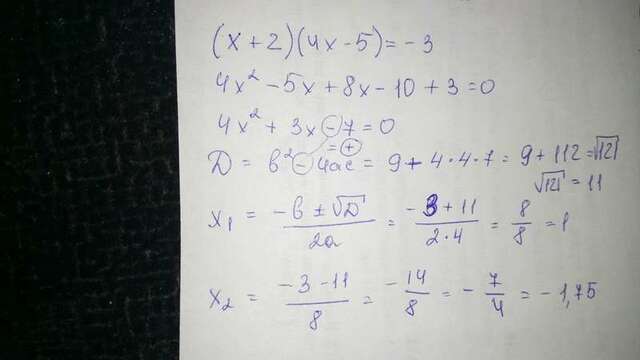 (x+2)(4x-5)=-3
4x²-5x+8x-10+3=0
4x²+3x-7=0
=+
D=b²-4ac=9+4·4·7=9+112=√121
√121=11
x₁=(-b±√D)/2a=(-3+11)/2·4=8/8=1
x₂=(-3-11)/8=-14/8=-7/4=-1,75